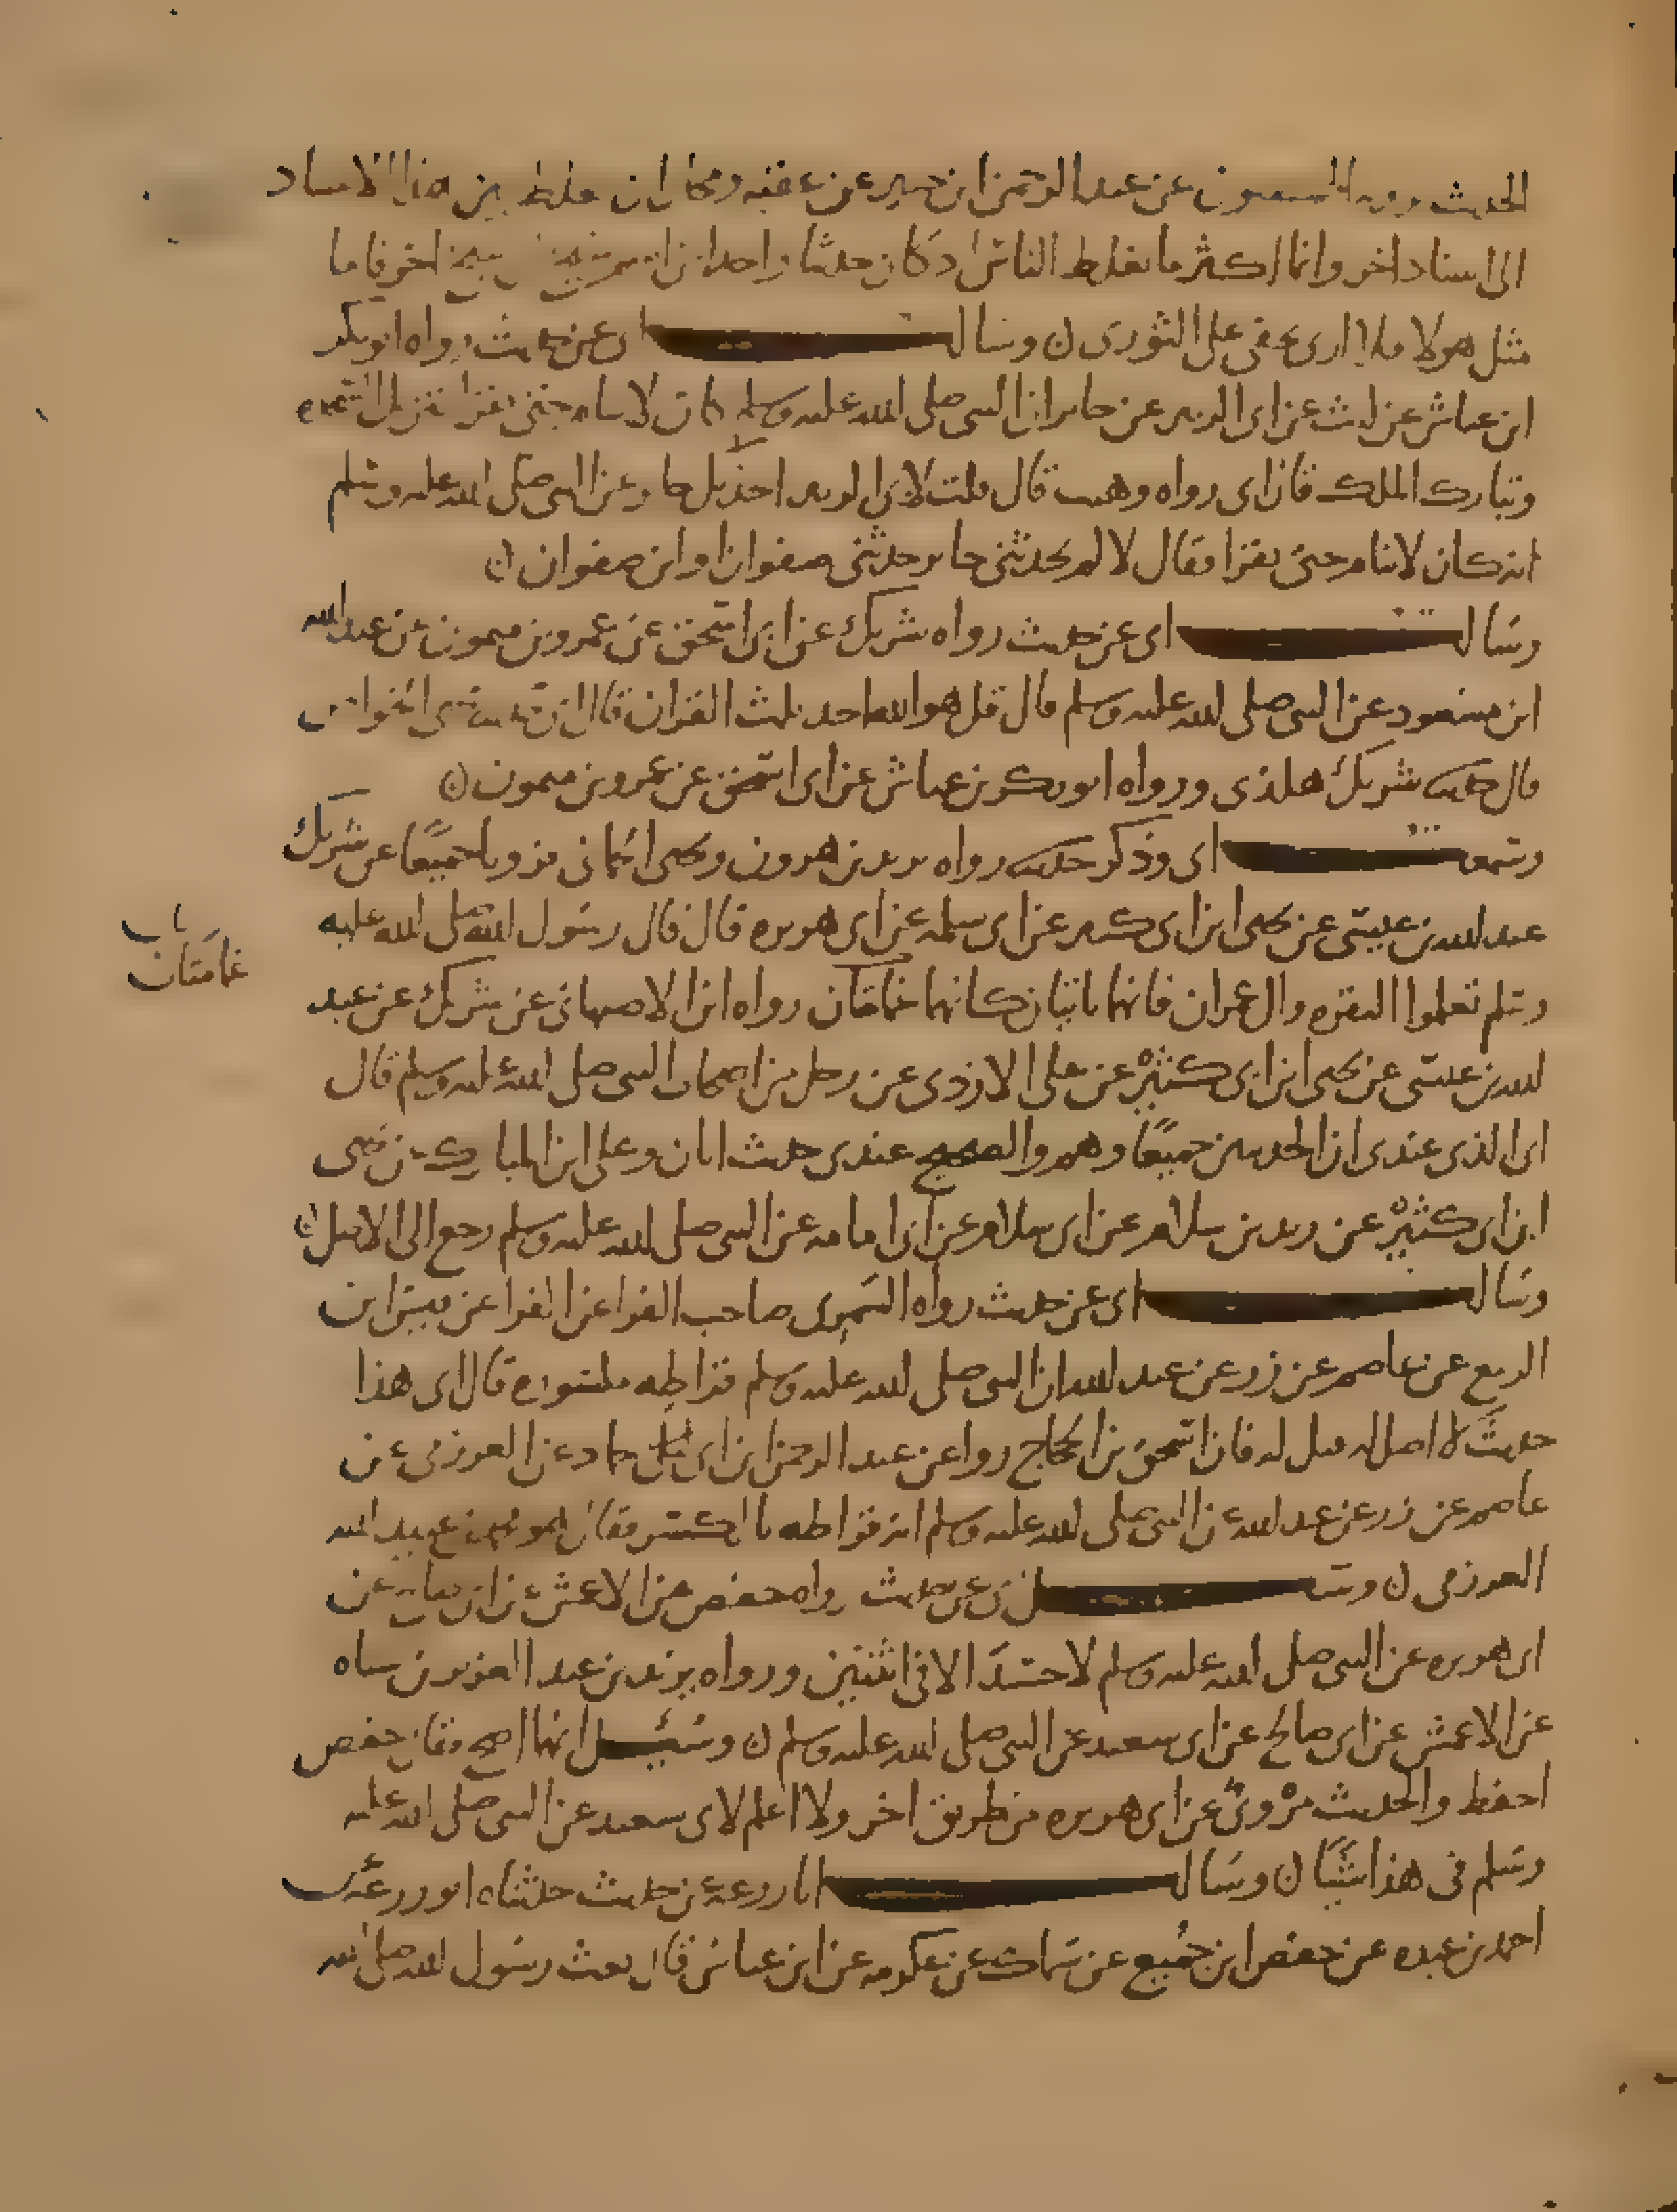 الحديث رواه المصريون عن عبد الرحمن ابن جبير عن عقبه ومحال ان يغلط بين هذا الاسناد
الى اسناد اخر وانما اكثر ما يغلط الناس اذ كان حديثا واحدا من اسم شيخ الى شيخ اخر فاما
مثل هولا فلا ارى يخفى على الثورى ن وسالت ابى عن حديث رواه ابو بكر
ابن عياش عن ليث عن ابى الزبير عن جابر ان النبى صلى الله عليه وسلم كان لا ينام حتى يقرا تنزيل السجده
وتبارك الملك قال ابى رواه زهير قال قلت لابى الزبير احدثك جابر عن النبى صلى الله عليه وسلم
انه كان لا ينام حتى يقرا فقال لا لم يحدثنى جابر حدثنى صفوان او ابن صفوان ن
وسالت ابى عن حديث رواه شريك عن ابى اسحق عن عمرو بن ميمون عن عبد الله
ابن مسعود عن النبى صلى الله عليه وسلم قال قل هو الله احد ثلث القران قال
قال حديث شريك هكذى ورواه ابو بكر بن عياش عن ابى اسحق عن عمرو بن ميمون ن
وسمعت ابى وذكر حديث رواه يزيد بن هرون ويحيى الحمانى يرويا جميعا عن شريك
عبد الله بن عيسى عن يحيى ابن ابى كثير عن ابى سلمه عن ابى هريره قال قال رسول الله صلى الله عليه
وسلم تعلموا البقره وال عمران فانهما ياتيان كانهما غمامتان رواه ابن الاصبهانى عن شريك عن عبد
الله بن عيسى عن يحيى ابن ابى كثير عن على الازدى عن رجل من اصحاب النبى صلى الله عليه وسلم قال
ابى الذى عندى ان الحديثين جميعا وهم والصحيح عندى حديث ابان وعلى ابن المبارك عن يحيى
ابن ابى كثير عن زيد بن سلام عن ابى سلام عن ابى امامه عن النبى صلى الله عليه وسلم رجع الى الاصل ن
وسالت ابى عن حديث رواه السمرى صاحب الفرا عن الفرا عن قيس ابن
الربيع عن عاصم عن زر عن عبد الله ان النبى صلى الله عليه وسلم قرا طه مكسوره قال ابى هذا
حديث لا اصل له قيل له فان اسحق بن الحجاج روا عن عبد الرحمن ابن ابى حماد عن العرزمى عن
عاصم عن زر عن عبد الله عن النبى صلى الله عليه وسلم انه قرا طه بالكسر فقال هو محمد بن عبيد الله
العرزمى ن وسئل ابى عن حديث رواه حفص عن الاعمش عن ابى صالح عن
ابى هريره عن النبى صلى الله عليه وسلم لا حسد الا فى اثنتين ورواه يزيد بن عبد العزيز بن سياه
عن الاعمش عن ابى صالح عن ابى سعيد عن النبى صلى الله عليه وسلم ن وسئل ايهما اصح فقال حفص
احفظ والحديث مروى عن ابى هريره من طريق اخر ولا اعلم لابى سعيد عن النبى صلى الله عليه
وسلم فى هذا شيا ن وسالت ابا زرعه عن حديث حدثناه ابو زرعه عن
احمد بن عبده عن حفص ابن جميع عن سماك عن عكرمه عن ابن عباس قال بعث رسول الله صلى الله
غمامتان